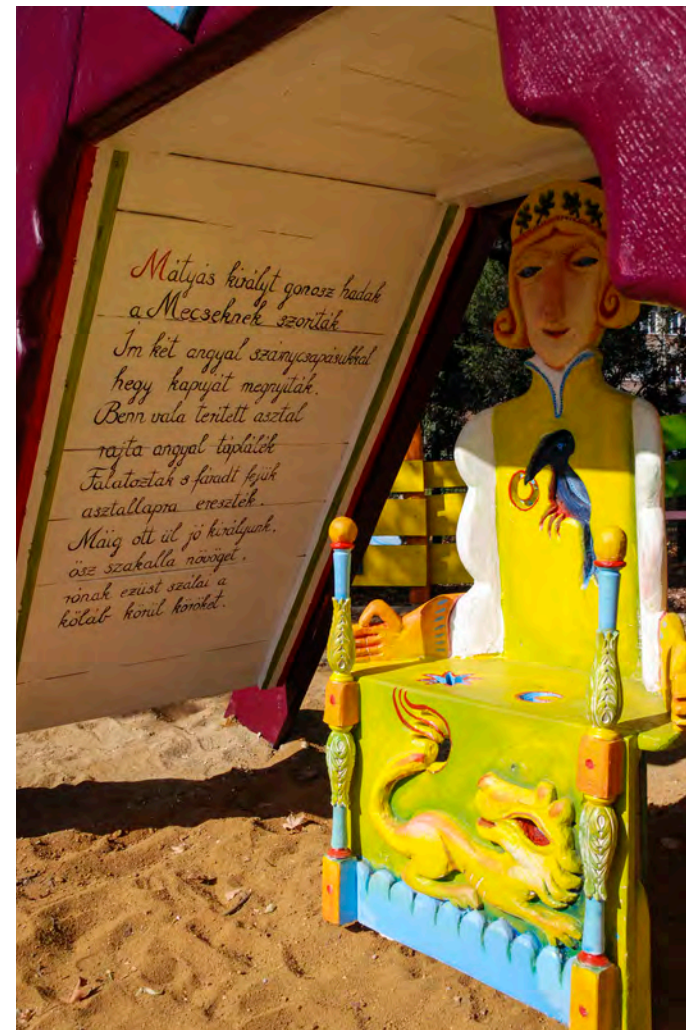 Mátyás királyt gonosz hadak
a Mecseknek szoríták
Ím két angyal szánycsapásukkal
hegy kapuját megnyiták.
Benn vala terített asztal
rajta angyal táplálék
Falatoztak s fáradt fejük
asztallapra ereszték.
Máig ott ül jó királyunk,
ősz szakalla növöget,
rónak ezüst szálai a
kőláb körül köröket.